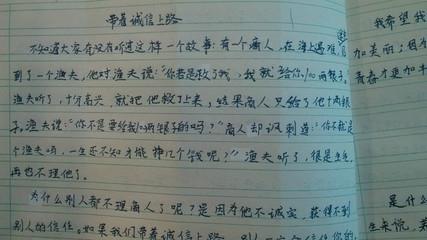 带着诚信上路
不知道大家有没有听过这样一个故事：有一个商人，在海上遇难，遇
到了一个渔夫，他对渔夫说："你若是救了我，我就给你100两银子。"
渔夫听了，十分高兴，就把他救了上来，结果商人只给了他十两银
子。渔夫说："你不是要给我100两银子的吗？"商人却讽刺道："你不就是
个渔夫吗，一生还不知才能挣几个钱呢？"渔夫听了，很是生气，
再也不理他了。
为什么别人都不理商人了呢？是因为他不诚实，获得不到
别人的信任。如果我们带着诚信上路，别人
我希望我
加美丽；因为
青春才更加
是什么
生来说，